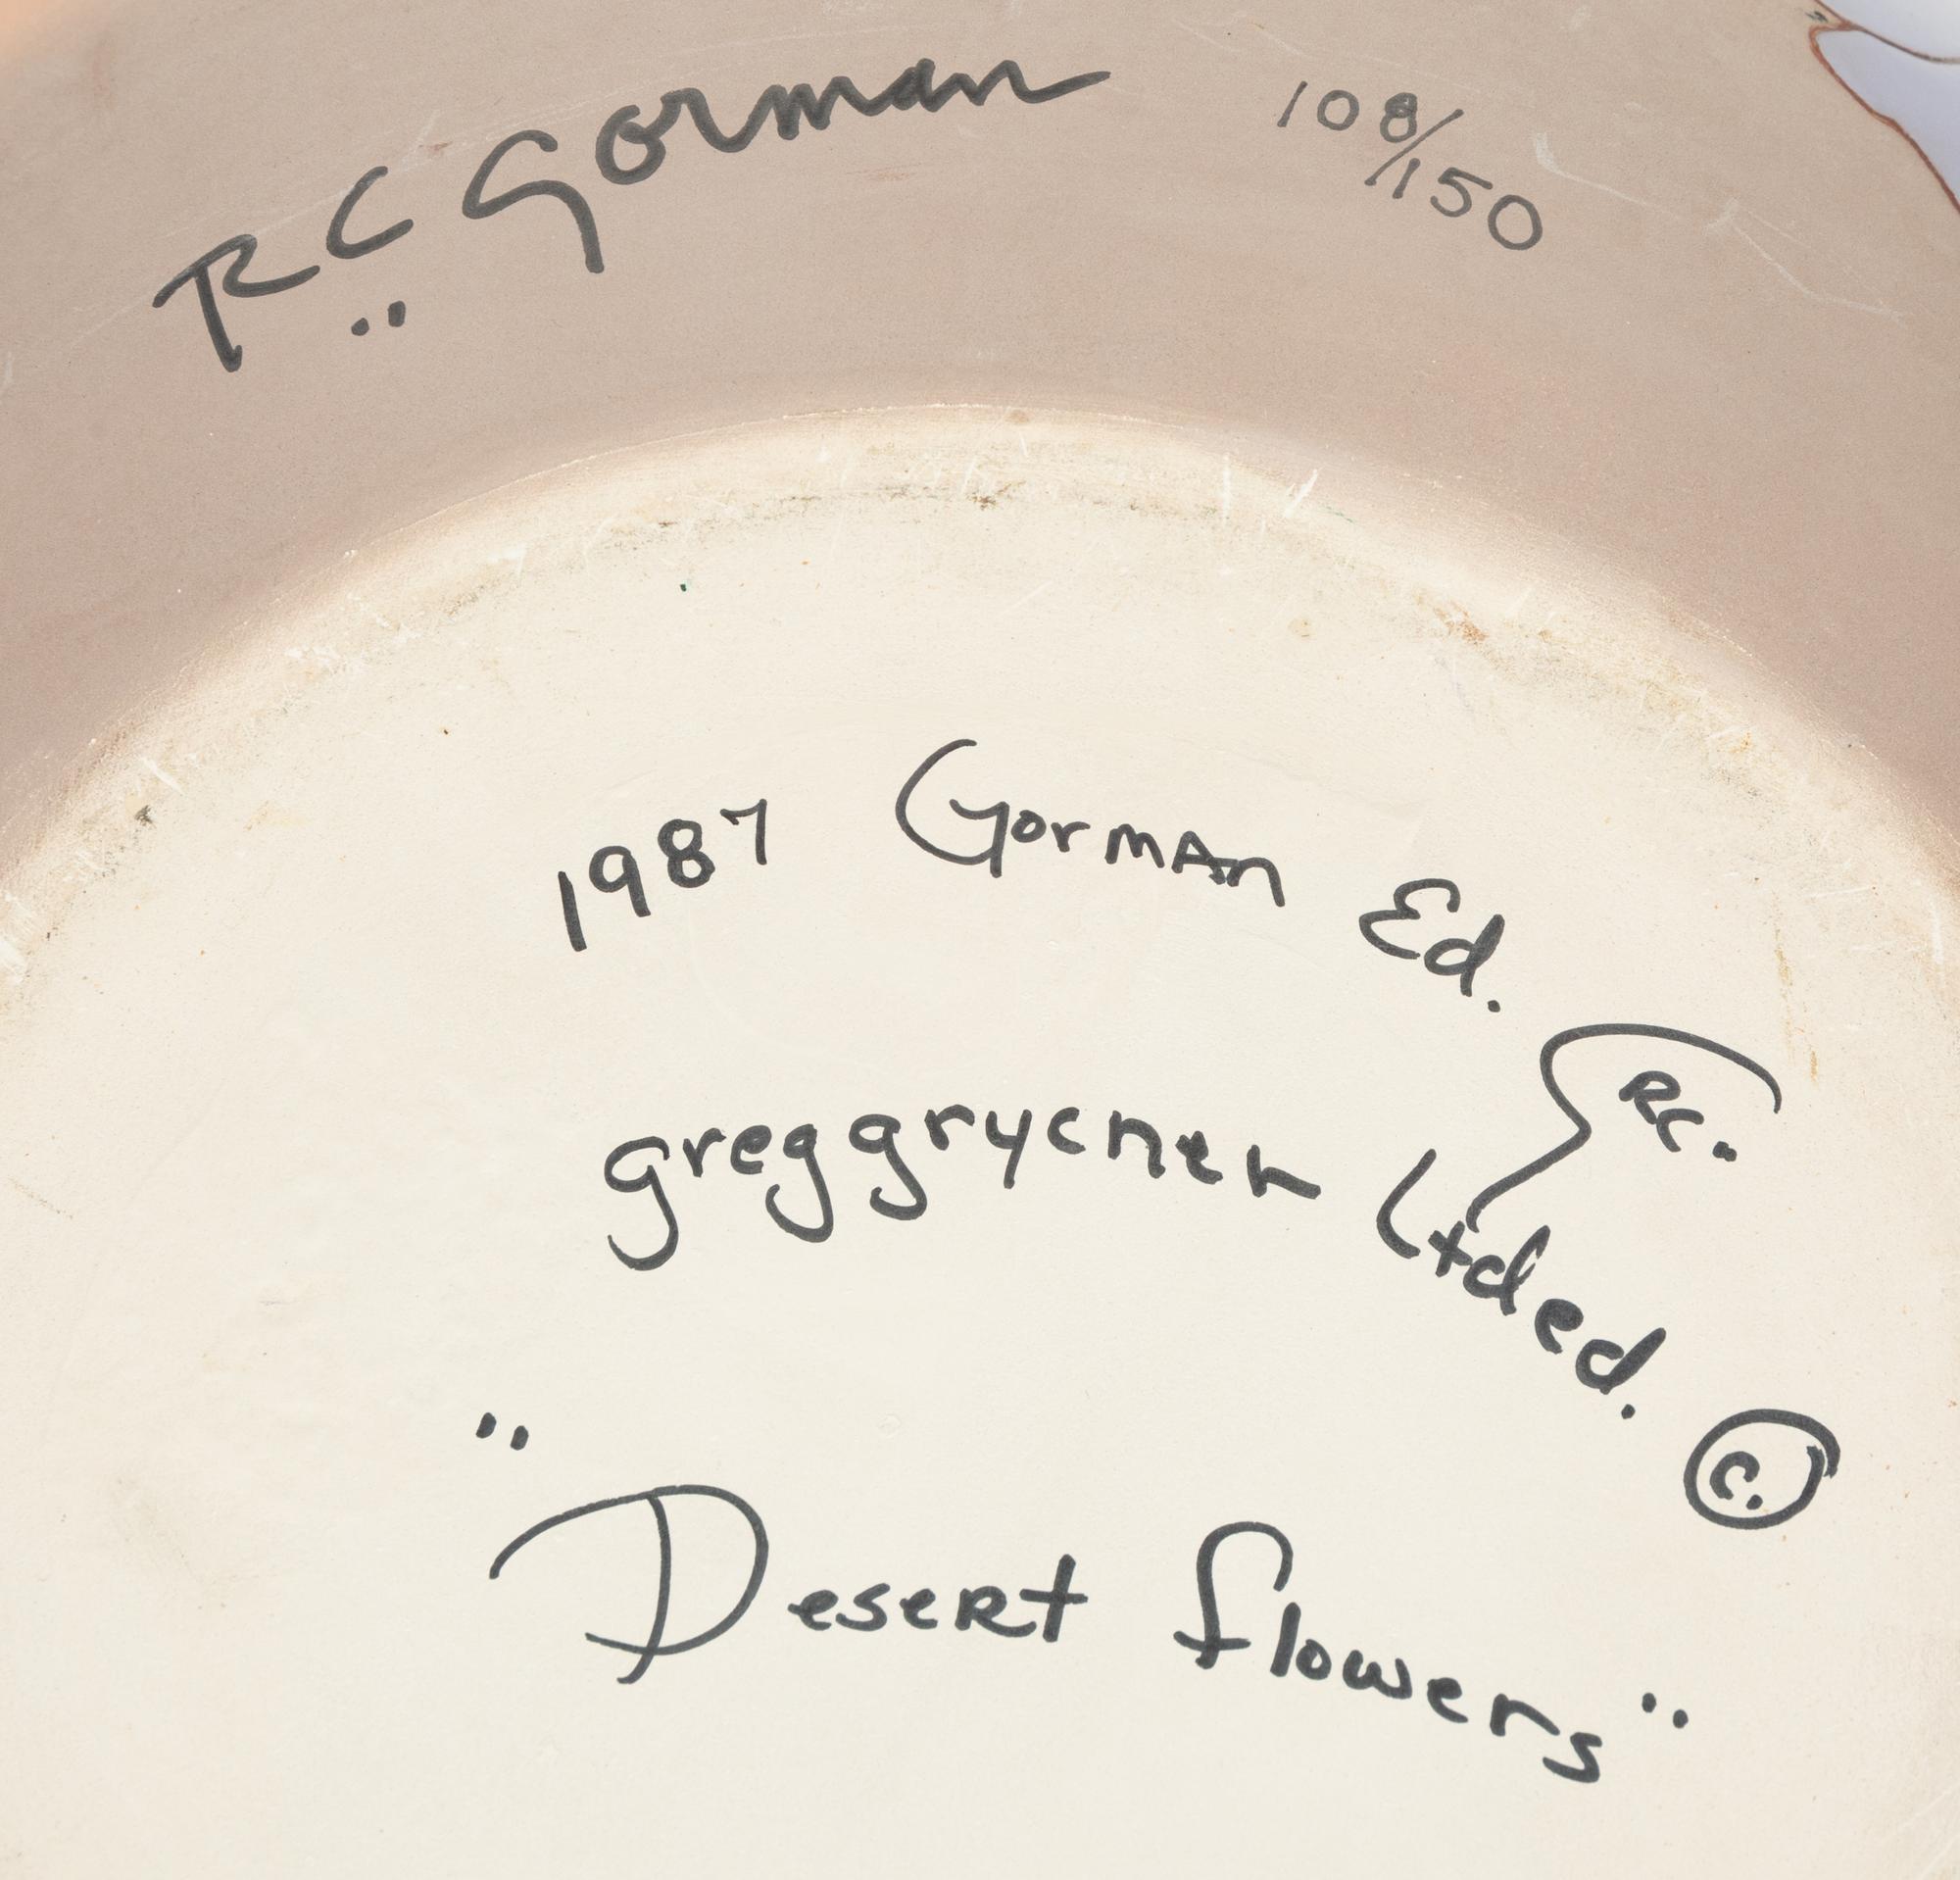 R C Gorman 108/150
1987 Gorman Ed. RC.
greggrycner Ltded. ©
"Desert flowers"